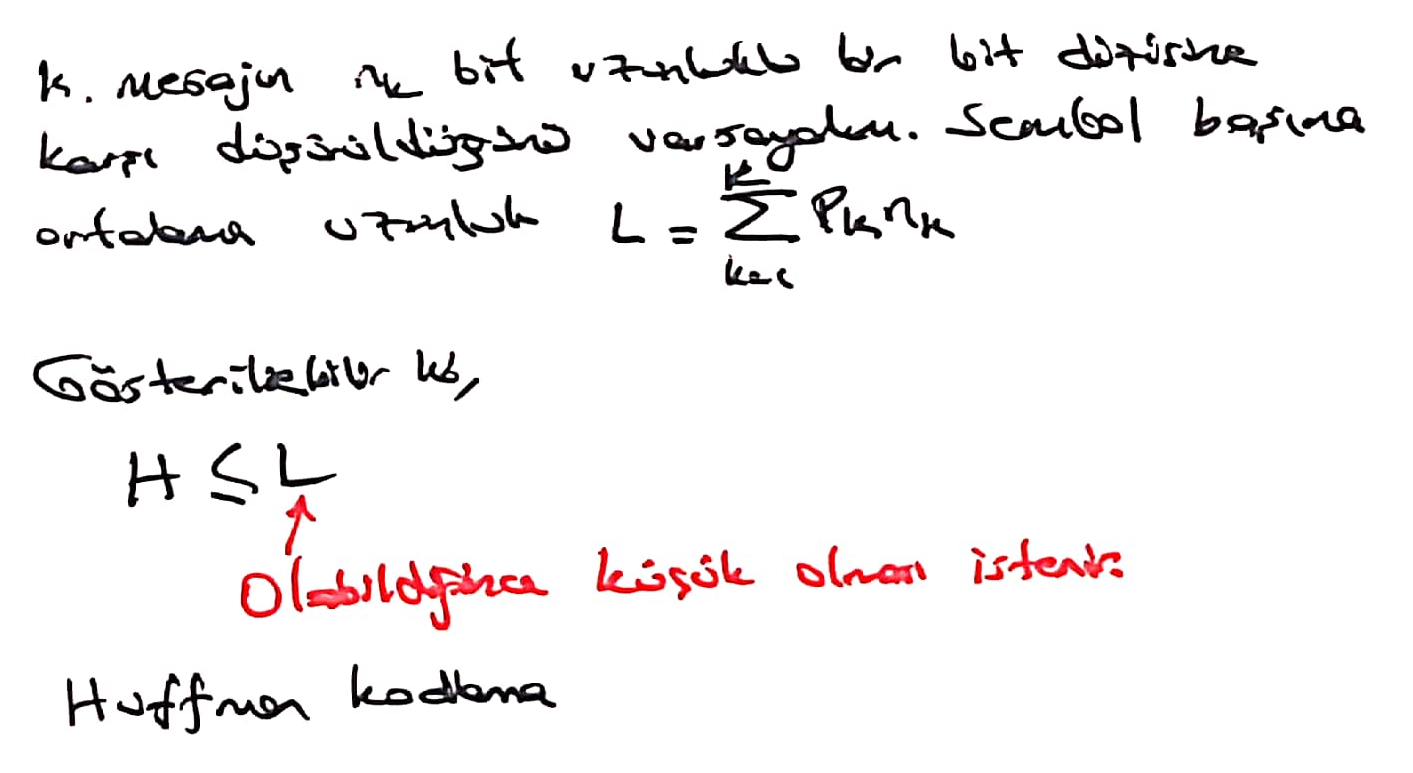 k. mesajın nₖ bit uzunluklu bir bit dizisine
karşı düşürüldüğünü varsayalım. Sembol başına
ortalama uzunluk L = ∑_{k=1}^{K} Pₖ nₖ
Gösterilebilir ki,
H ≤ L
Olabildiğince küçük olması istenir.
Huffman kodlama